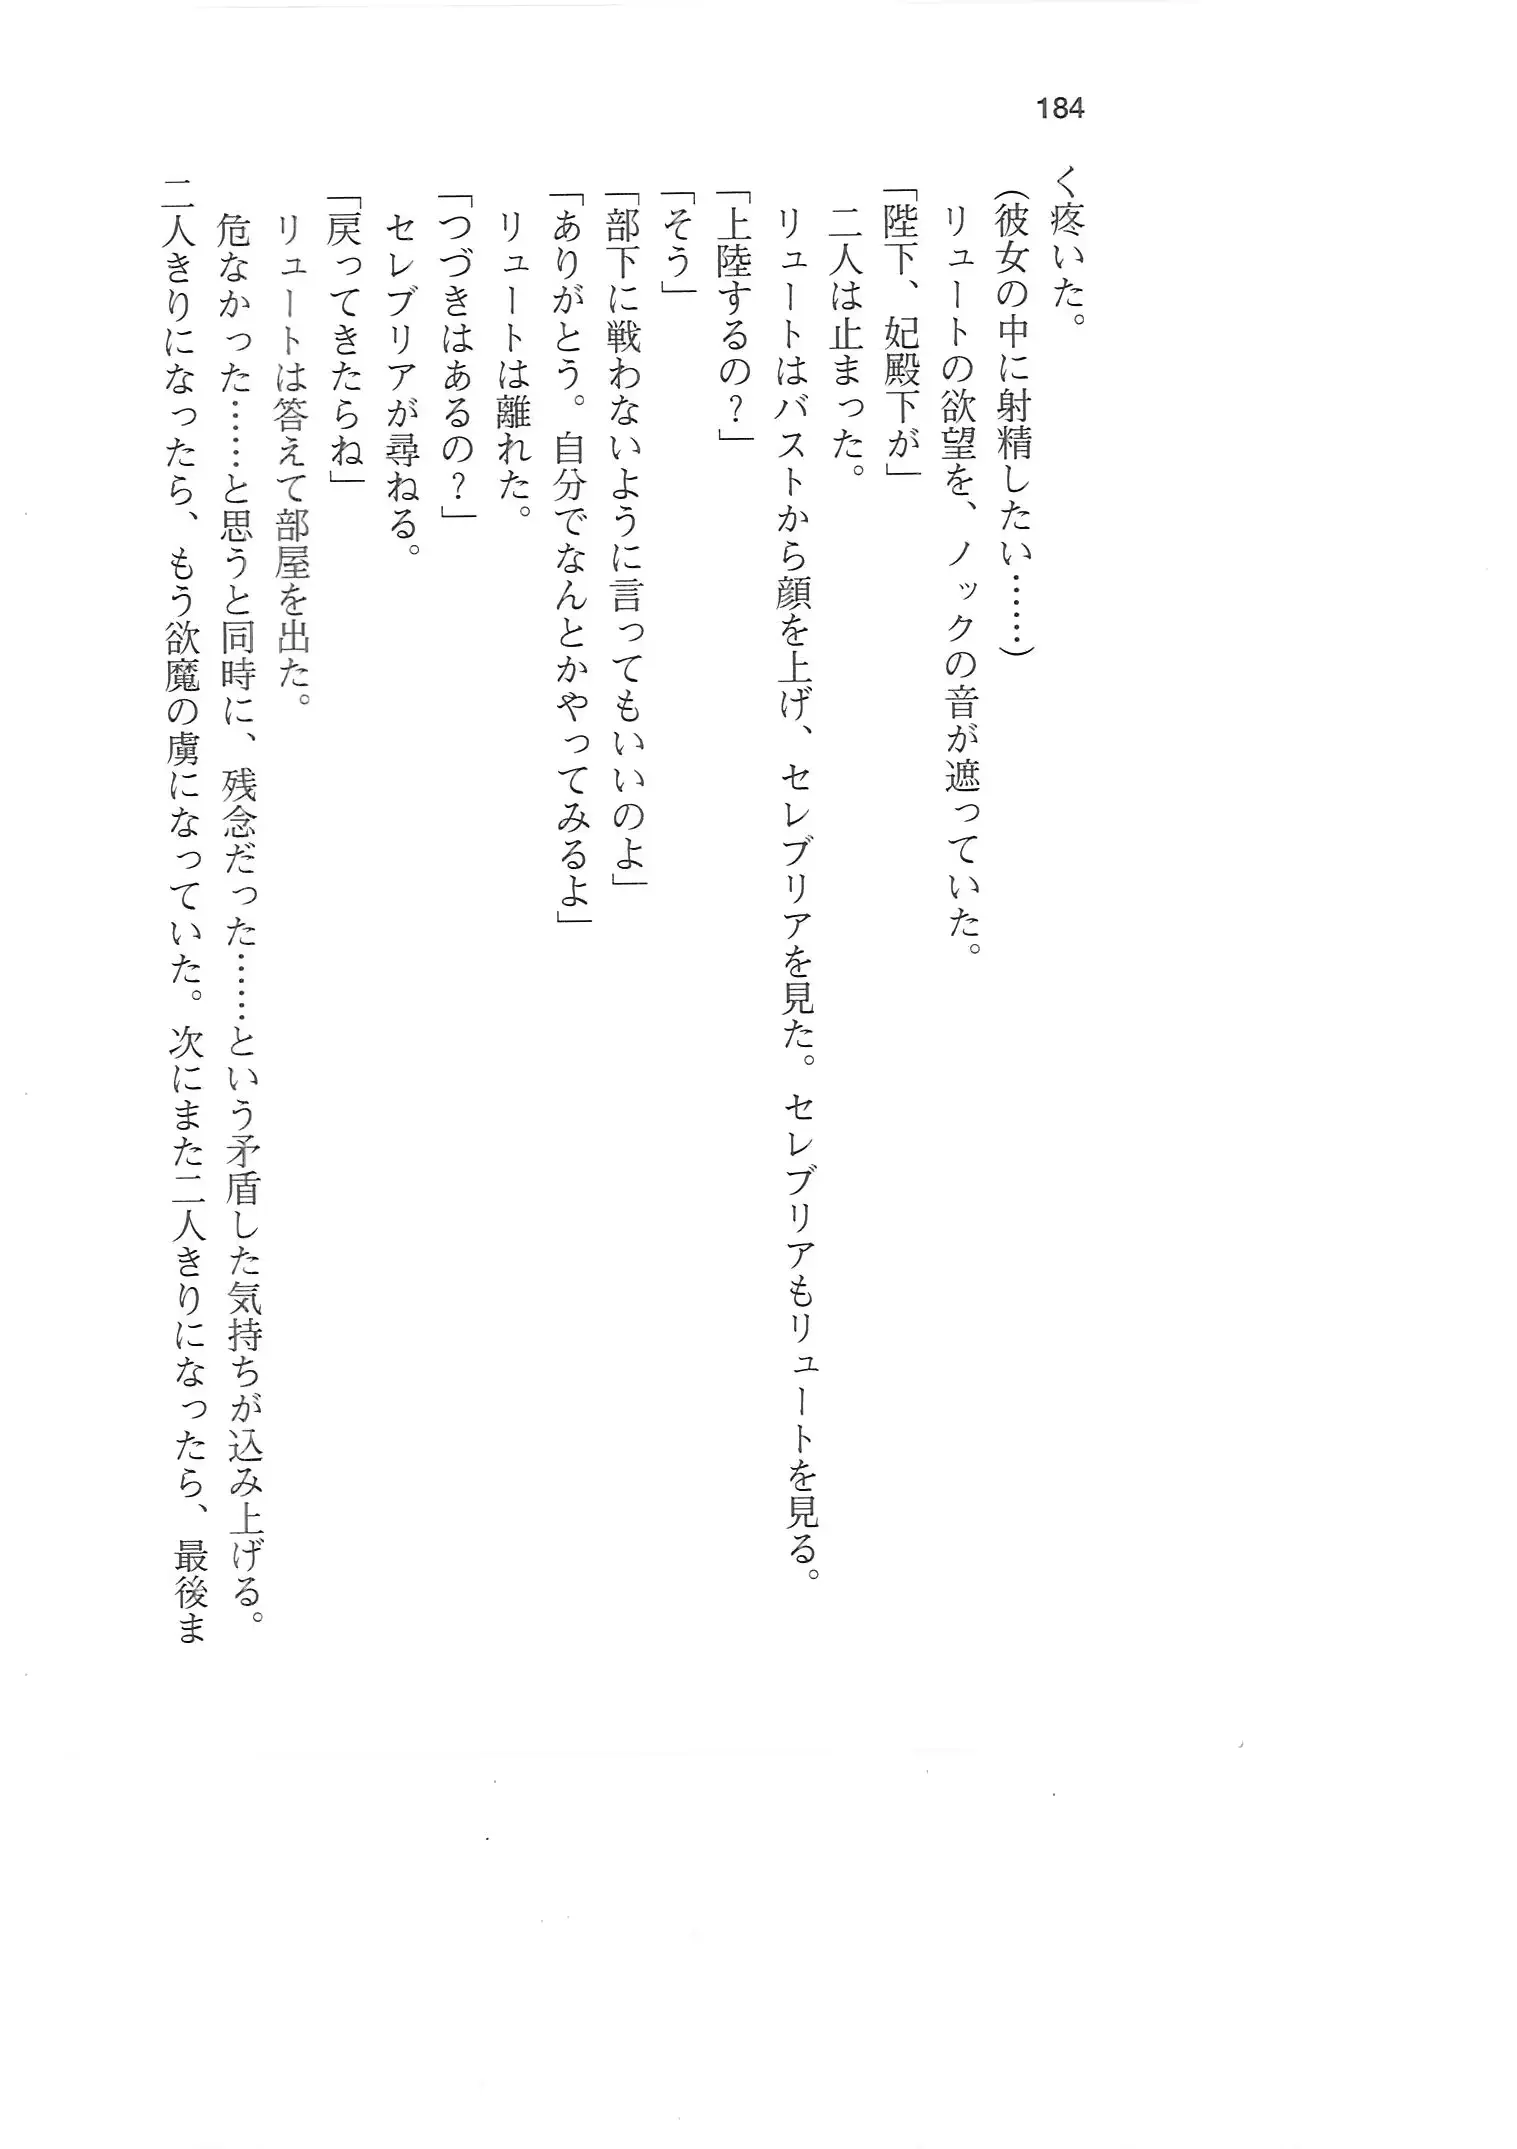 184
く疼いた。
(彼女の中に射精したい……)
リュートの欲望を、ノックの音が遮っていた。
「陛下、妃殿下が」
二人は止まった。
リュートはバストから顔を上げ、セレブリアを見た。セレブリアもリュートを見る。
「上陸するの？」
「そう」
「部下に戦わないように言ってもいいのよ」
「ありがとう。自分でなんとかやってみるよ」
リュートは離れた。
「つづきはあるの？」
セレブリアが尋ねる。
「戻ってきたらね」
リュートは答えて部屋を出た。
危なかった……と思うと同時に、残念だった……という矛盾した気持ちが込み上げる。
二人きりになったら、もう欲魔の虜になっていた。次にまた二人きりになったら、最後ま